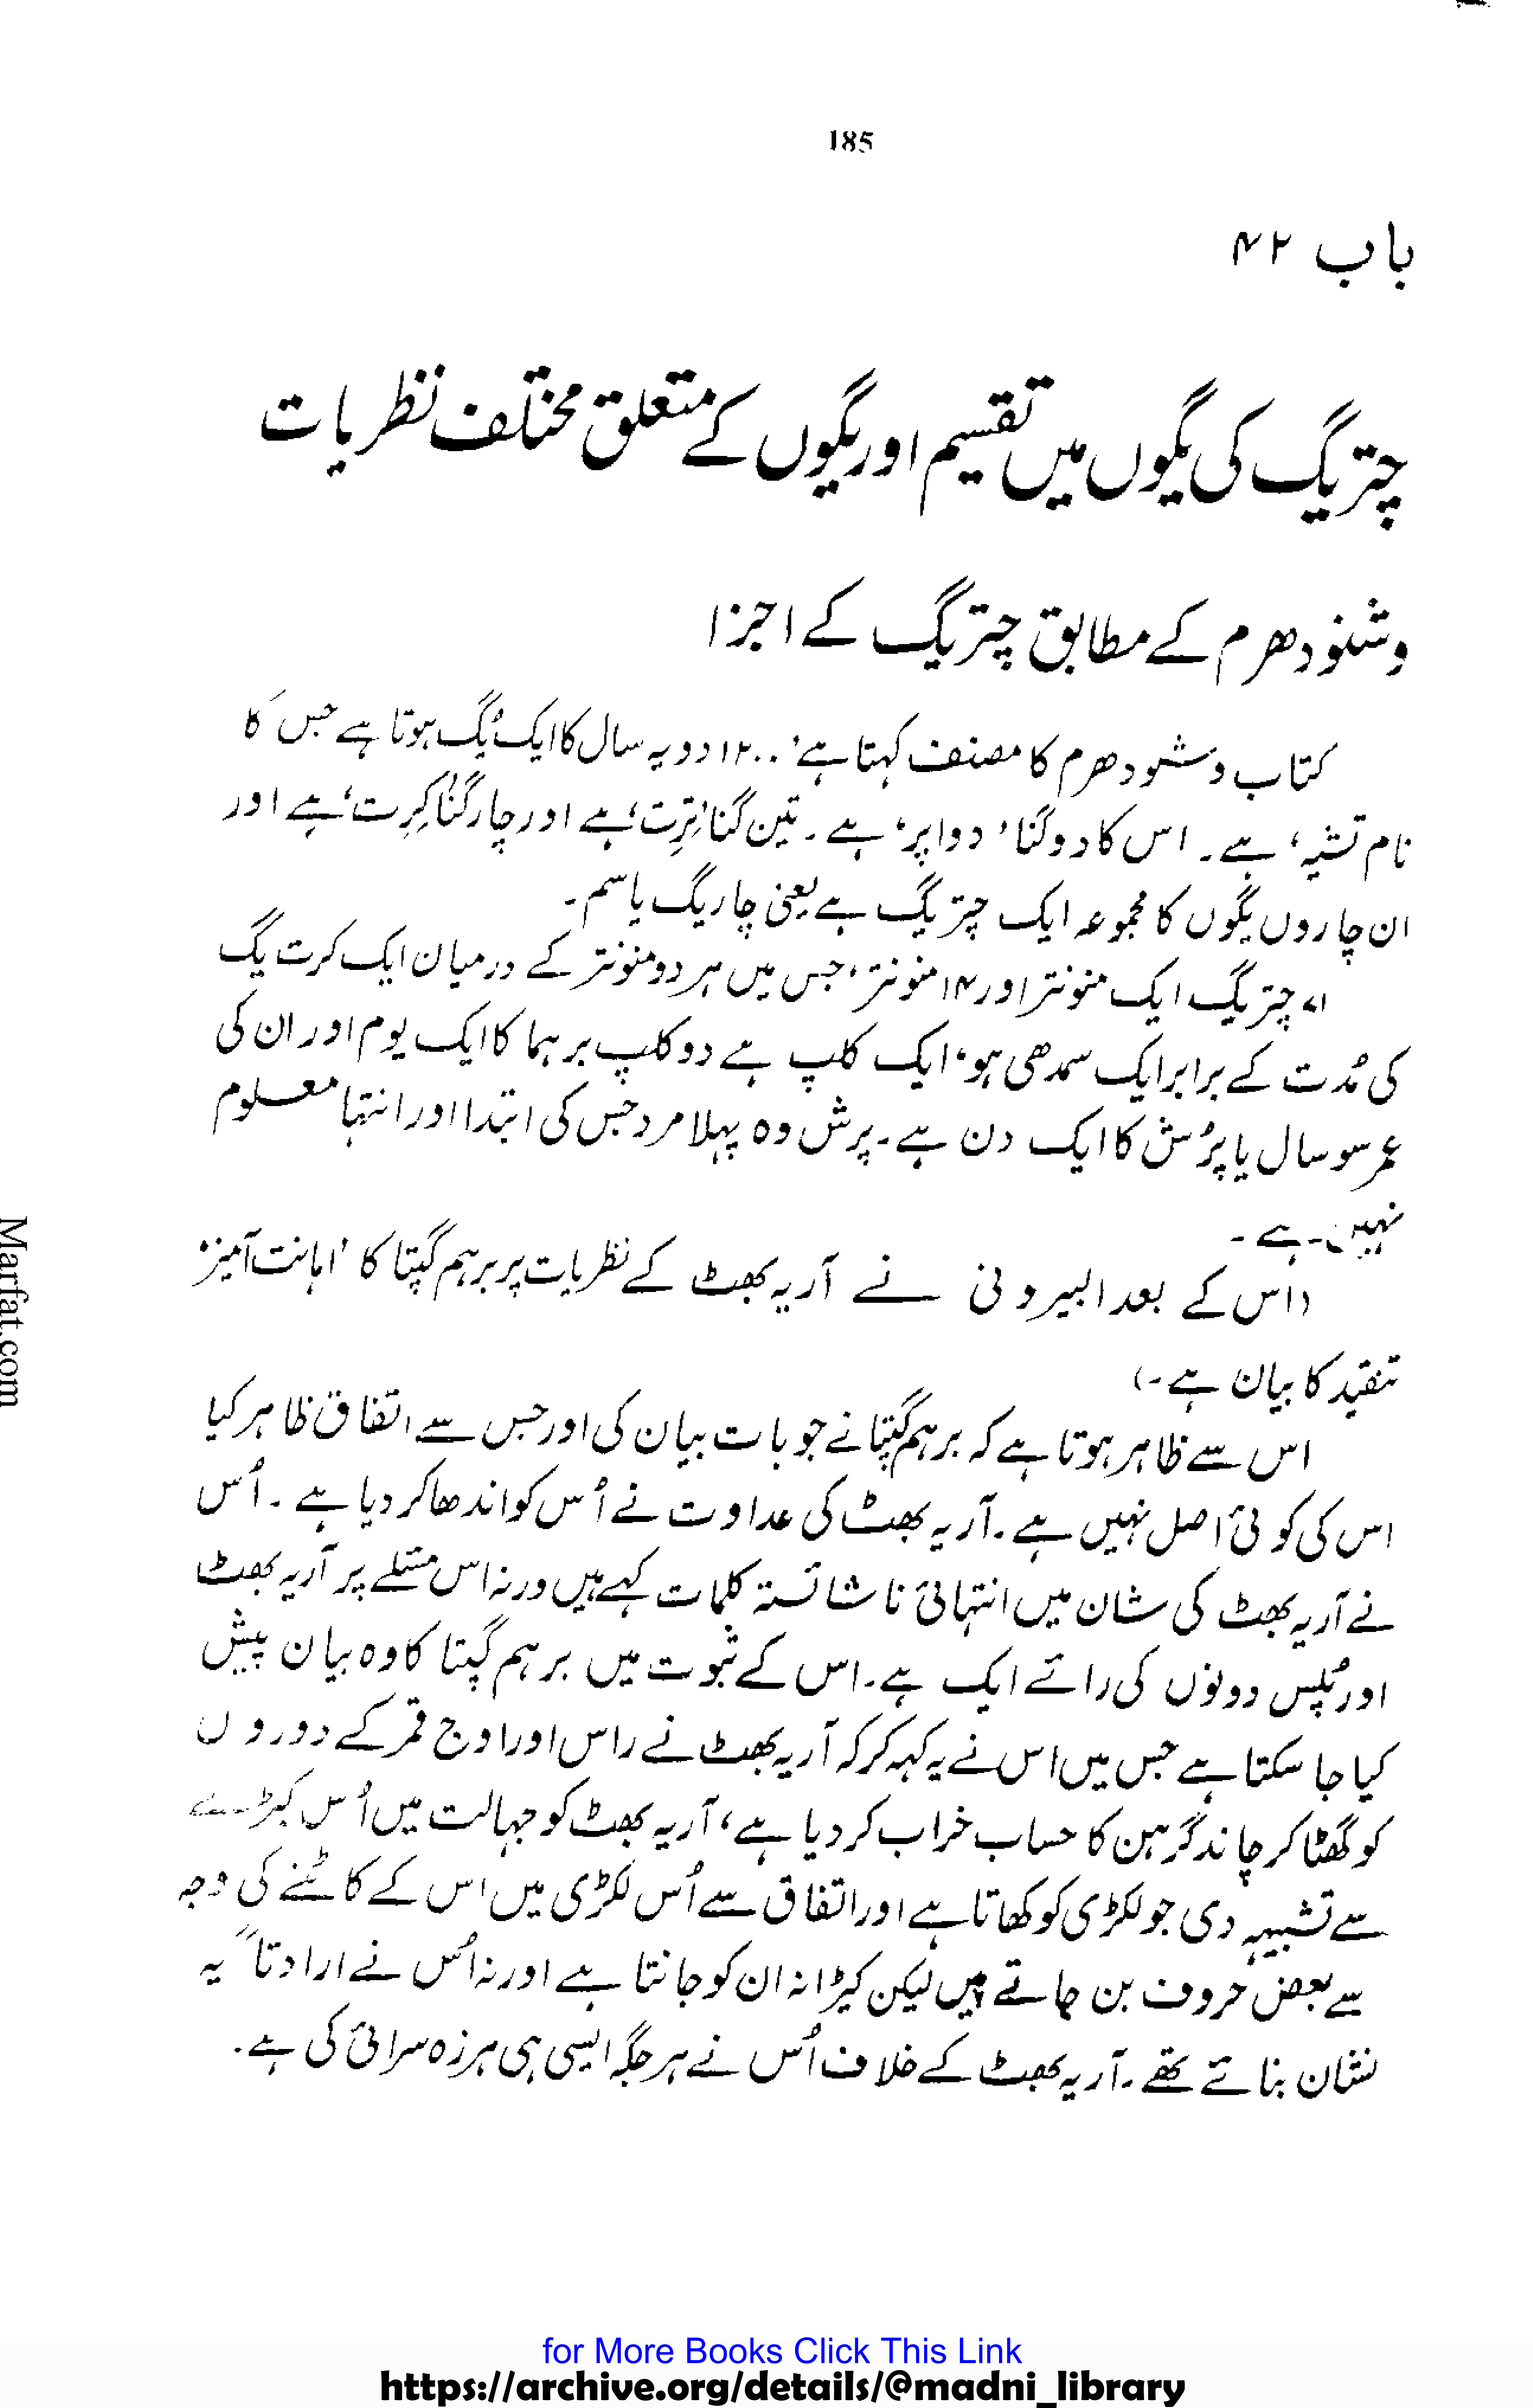 185
باب ۴۲
چتریگ کی یگوں میں تقسیم اور یگوں کے متعلق مختلف نظریات
وشنو دھرم کے مطابق چتریگ کے اجزا
کتاب وشنو دھرم کا مصنف کہتا ہے، ۱۲۰۰ دویہ سال کا ایک یُگ ہوتا ہے جس کا
نام تشیہ، ہے۔ اس کا دوگنا 'دواپر' ہے۔ تین گنا 'تِرِت' ہے اور چار گُنا 'کِرِت' ہے اور
ان چاروں یگوں کا مجموعہ ایک چتریگ ہے یعنی چاریگ یا سم۔
۷۱ چتریگ ایک منونتر اور ۱۴ منونتر، جس میں ہر دو منونتر کے درمیان ایک کرت یگ
کی مُدت کے برابر ایک سمدھی ہو، ایک کلپ ہے دو کلپ برہما کا ایک یوم اور ان کی
عمر سو سال یا پُرُش کا ایک دن ہے۔ پرش وہ پہلا مرد جس کی ابتدا اور انتہا معلوم
نہیں ہے۔
(اس کے بعد البیرونی نے آریہ بھٹ کے نظریات پر برہم گپتا کا 'اہانت آمیز'
تنقید کا بیان ہے۔)
اس سے ظاہر ہوتا ہے کہ برہم گپتا نے جو بات بیان کی اور جس سے اتفاق ظاہر کیا
اس کی کوئی اصل نہیں ہے۔ آریہ بھٹ کی عداوت نے اُس کو اندھا کر دیا ہے۔ اُس
نے آریہ بھٹ کی شان میں انتہائی ناشائستہ کلمات کہے ہیں ورنہ اس مسئلے پر آریہ بھٹ
اور پُلِس دونوں کی رائے ایک ہے۔ اس کے ثبوت میں برہم گپتا کا وہ بیان پیش
کیا جا سکتا ہے جس میں اس نے یہ کہہ کر کہ آریہ بھٹ نے راس اور اوج قمر کے دوروں
کو گھٹا کر چاند گرہن کا حساب خراب کر دیا ہے، آریہ بھٹ کو جہالت میں اُس کیڑے
سے تشبیہہ دی جو لکڑی کو کھاتا ہے اور اتفاق سے اُس لکڑی میں اس کے کاٹنے کی وجہ
سے بعض حروف بن جاتے ہیں لیکن کیڑا نہ ان کو جانتا ہے اور نہ اُس نے ارادتاً یہ
نشان بنائے تھے۔ آریہ بھٹ کے خلاف اُس نے ہر جگہ ایسی ہی ہرزہ سرائی کی ہے۔
Marfat.com
for More Books Click This Link
https://archive.org/details/@madni_library